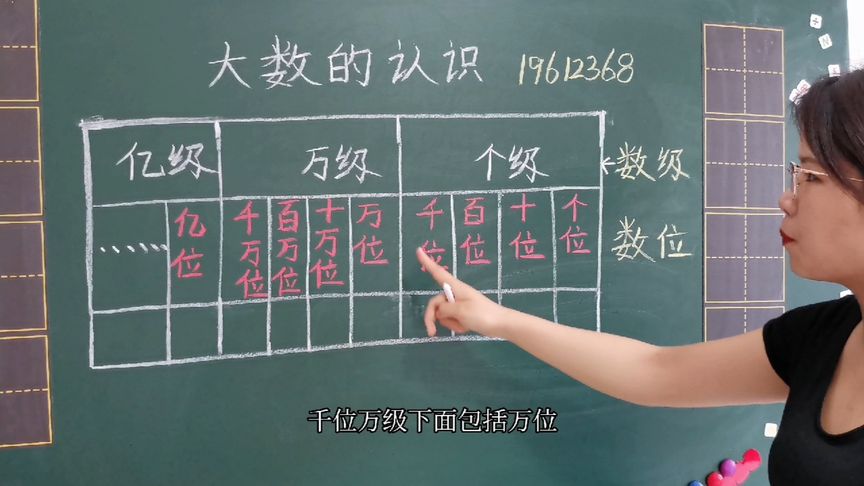 大数的认识 19612368
亿级 万级 个级 ←数级
…… 亿位 千万位 百万位 十万位 万位 千位 百位 十位 个位 数位
千位万级下面包括万位